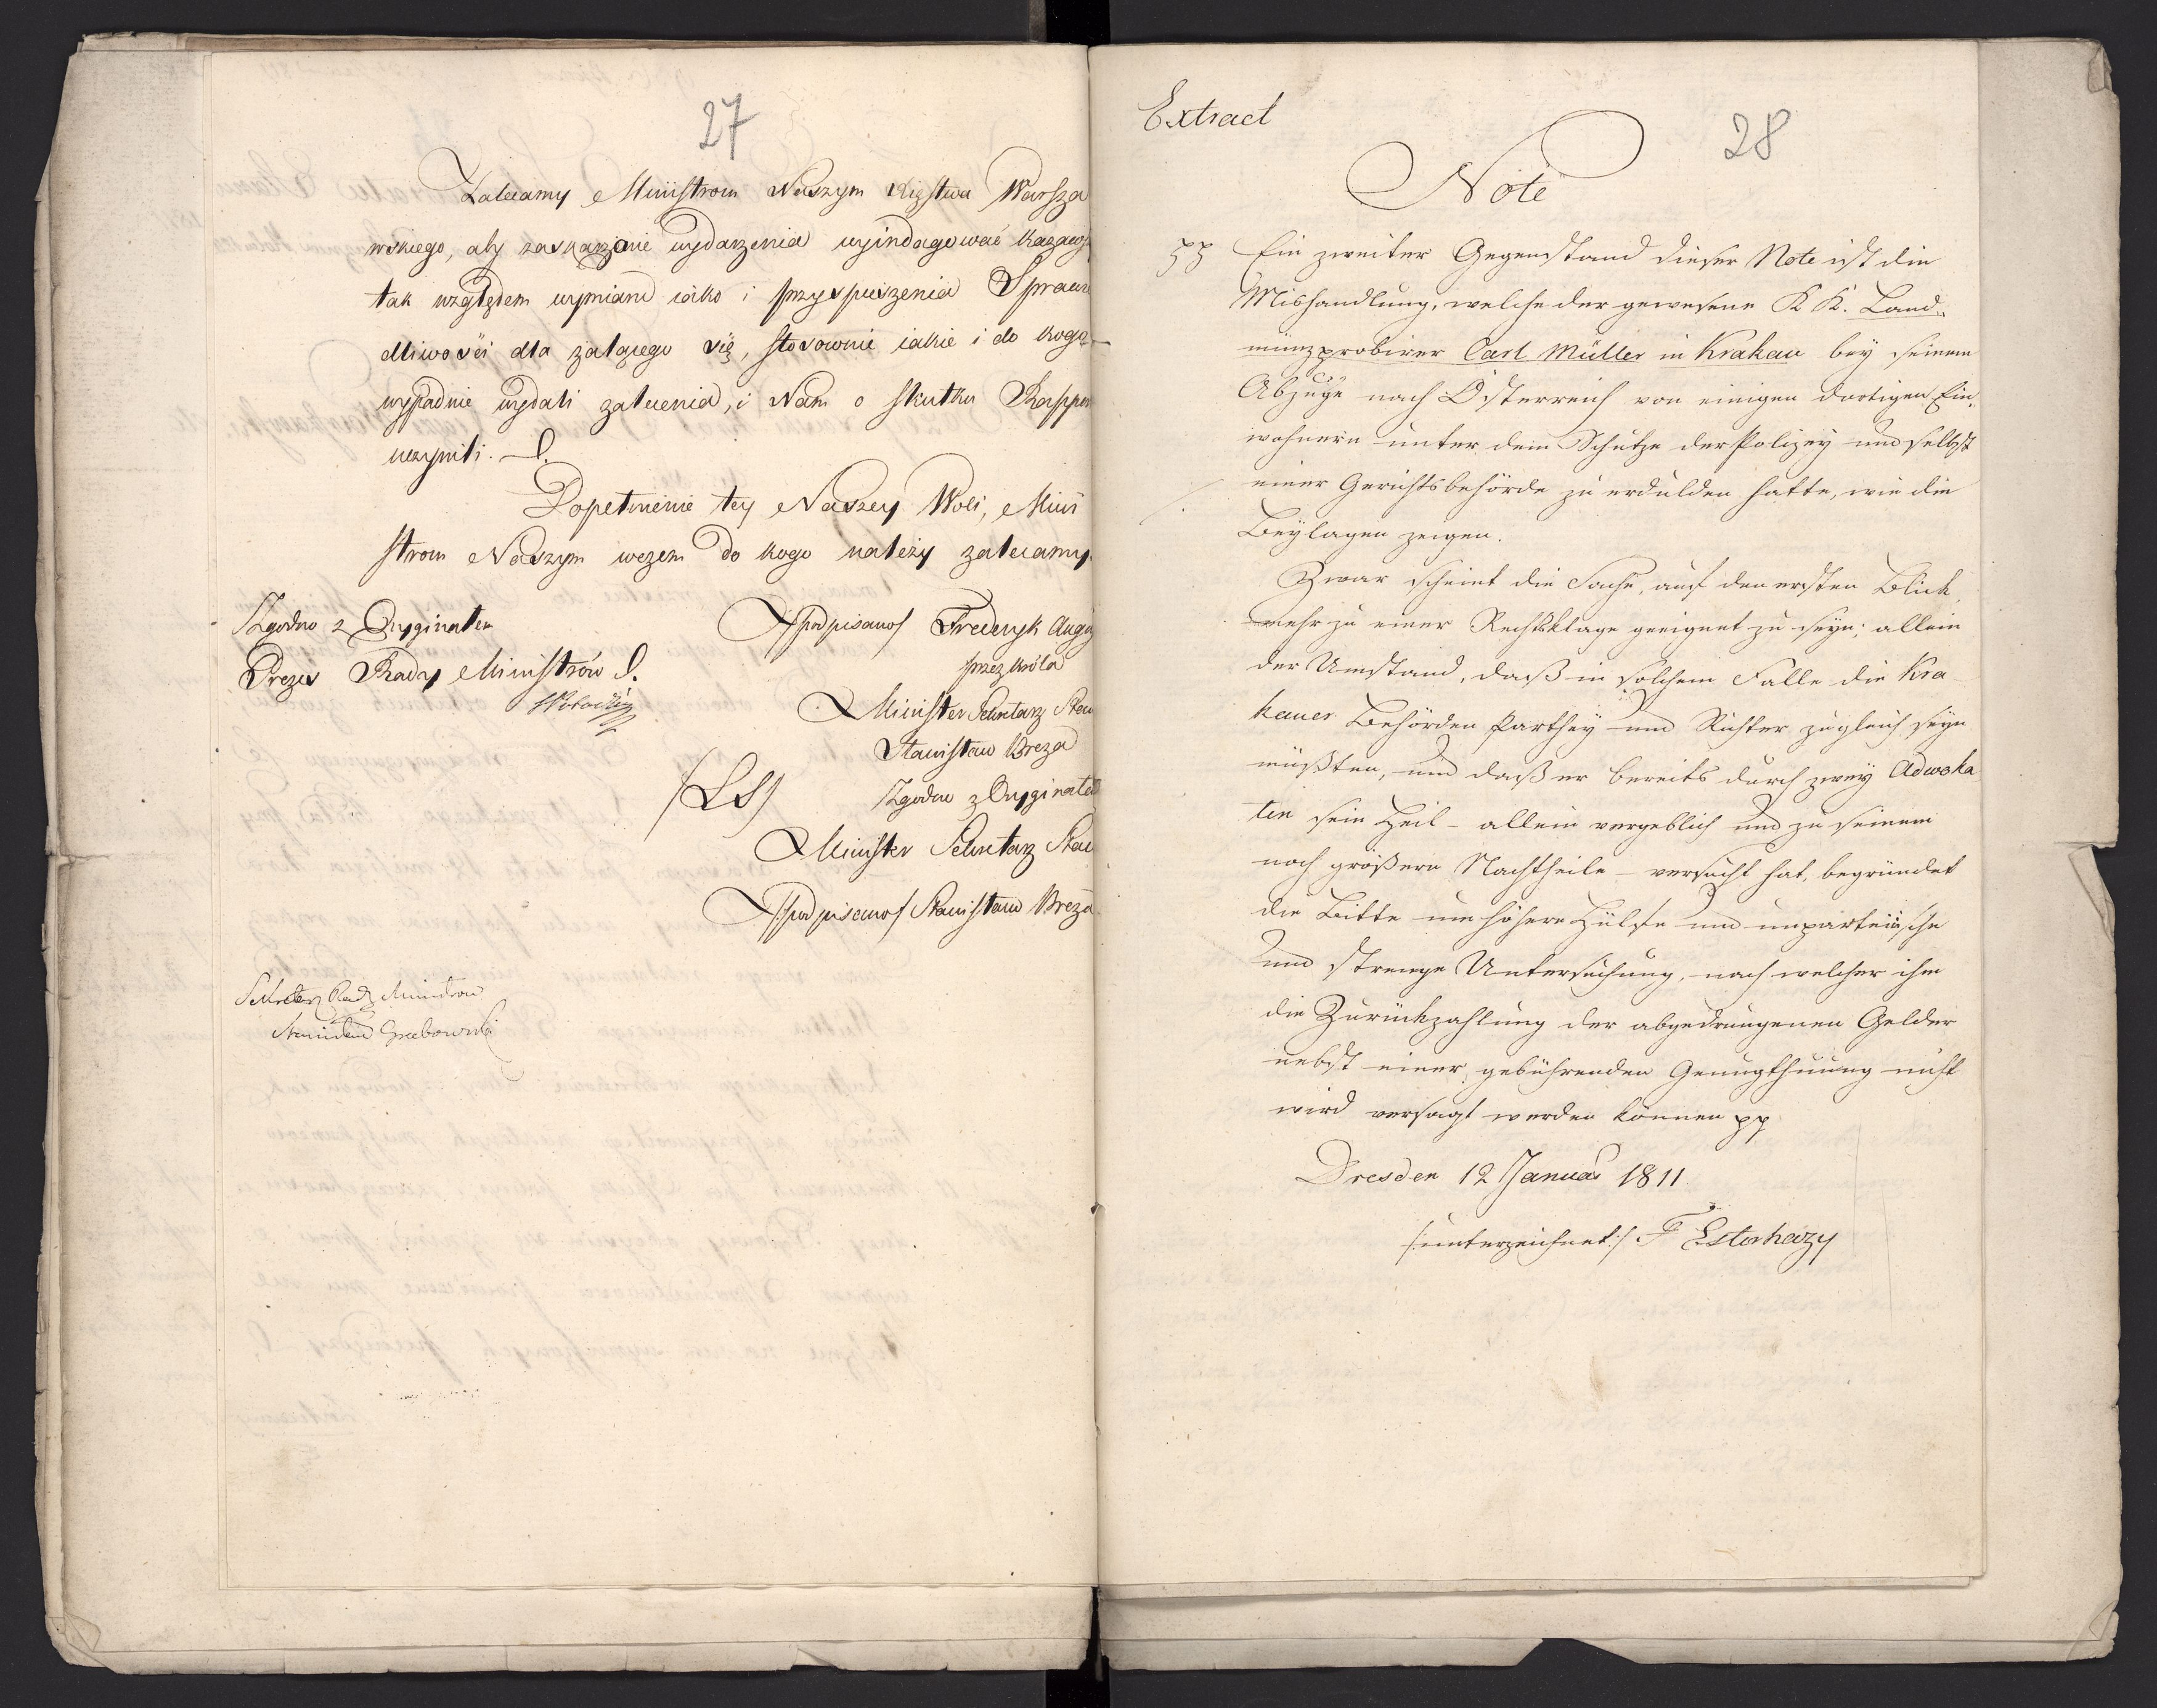 27
Zalecamy Ministrom Naszym Xięstwa Warsza
wskiego, aby zaskarżone wydarzenia wyindagować kazawszy
tak względem wymiaru iako i przyspieszenia Sprawie
dliwości dla żalącego się, stosownie iakie i do kogo
wypadnie wydali zalecenia, i Nam o skutku Rapport
uczynili.
Dopełnienie tey Naszey Woli, Mini
strom Naszym wczem do kogo należy zalecamy
Zgodno z Oryginałem
Prezes Rady Ministrów
/podpisano/ Fryderyk August
przez Króla
Minister Sekretarz Stanu
Stanisław Breza
/LS/
Zgodno z Oryginałem
Minister Sekretarz Stanu
/podpisano/ Stanisław Breza
Sekretarz Rady Ministrow
Stanisław Grabowski
Extract
28
Note
pp Ein zweiter Gegenstand dieser Note ist die
Mishandlung, welche der gewesene K K. Land-
münzprobirer Carl Müller in Krakau bey seinem
Abzuge nach Österreich von einigen dortigen Ein-
wohnern unter dem Schutze der Polizey und selbst
einer Gerichtsbehörde zu erdulden hatte, wie die
Beylagen zeigen.
Zwar scheint die Sache, auf den ersten Blick
mehr zu einer Rechtsklage geeignet zu seyn; allein
der Umstand, daß in solchem Falle die Kra
kauer Behörden Parthey und Richter zugleich seyn
müßten, und daß er bereits durch zwey Advoka
ten sein Heil - allein vergeblich und zu seinem
noch größern Nachtheile - versucht hat, begründet
die Bitte um höhere Hülfe und unparteiische
und strenge Untersuchung, nach welcher ihm
die Zurückzahlung der abgedrungenen Gelder
nebst einer gebührenden Genugthuung nicht
wird versagt werden können pp
Dresden 12 Januar 1811
/:unterzeichnet:/ F Esterhazy